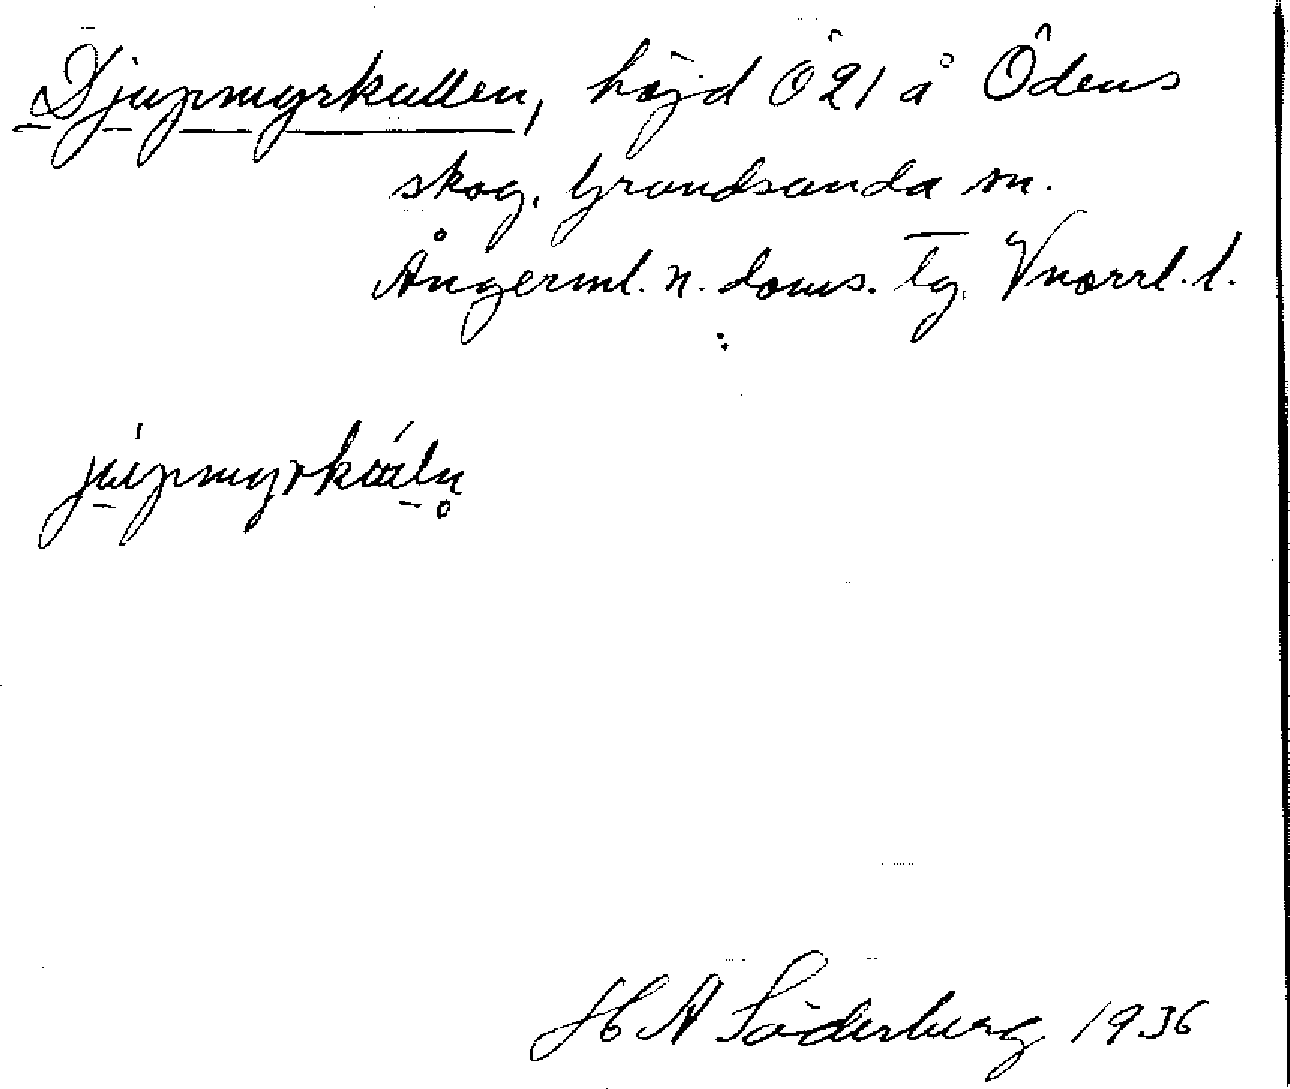 Djupmyrkullen, höjd Ö 21 å Ödens
skog. Grundsunda sn.
Ångerml. n. doms. tg. Vnorrl. l.
H A Söderberg 1936